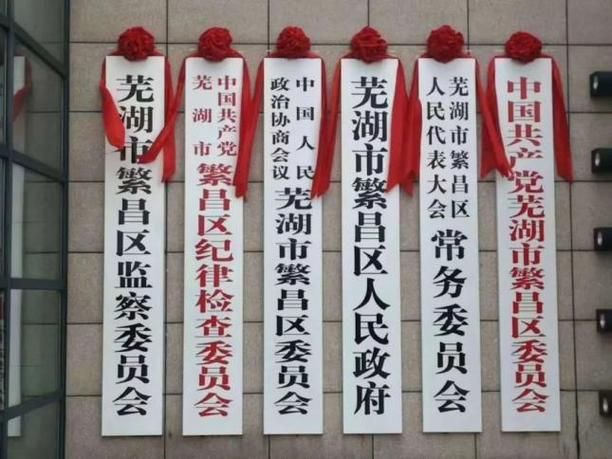 中国共产党芜湖市繁昌区委员会
芜湖市繁昌区
人民代表大会
常务委员会
芜湖市繁昌区人民政府
中国人民
政治协商会议
芜湖市繁昌区委员会
中国共产党
芜湖市
繁昌区纪律检查委员会
芜湖市繁昌区监察委员会